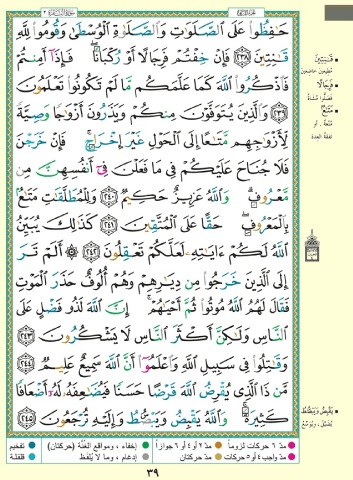 حَٰفِظُوا۟ عَلَى ٱلصَّلَوَٰتِ وَٱلصَّلَوٰةِ ٱلْوُسْطَىٰ وَقُومُوا۟ لِلَّهِ
قَٰنِتِينَ ﴿٢٣٨﴾ فَإِنْ خِفْتُمْ فَرِجَالًا أَوْ رُكْبَانًا ۖ فَإِذَآ أَمِنتُمْ
فَٱذْكُرُوا۟ ٱللَّهَ كَمَا عَلَّمَكُم مَّا لَمْ تَكُونُوا۟ تَعْلَمُونَ
﴿٢٣٩﴾ وَٱلَّذِينَ يُتَوَفَّوْنَ مِنكُمْ وَيَذَرُونَ أَزْوَٰجًا وَصِيَّةً
لِّأَزْوَٰجِهِم مَّتَٰعًا إِلَى ٱلْحَوْلِ غَيْرَ إِخْرَاجٍ ۚ فَإِنْ خَرَجْنَ
فَلَا جُنَاحَ عَلَيْكُمْ فِى مَا فَعَلْنَ فِىٓ أَنفُسِهِنَّ مِن
مَّعْرُوفٍ ۗ وَٱللَّهُ عَزِيزٌ حَكِيمٌ ﴿٢٤٠﴾ وَلِلْمُطَلَّقَٰتِ مَتَٰعٌۢ
بِٱلْمَعْرُوفِ ۖ حَقًّا عَلَى ٱلْمُتَّقِينَ ﴿٢٤١﴾ كَذَٰلِكَ يُبَيِّنُ
ٱللَّهُ لَكُمْ ءَايَٰتِهِۦ لَعَلَّكُمْ تَعْقِلُونَ ﴿٢٤٢﴾ ۞ أَلَمْ تَرَ
إِلَى ٱلَّذِينَ خَرَجُوا۟ مِن دِيَٰرِهِمْ وَهُمْ أُلُوفٌ حَذَرَ ٱلْمَوْتِ
فَقَالَ لَهُمُ ٱللَّهُ مُوتُوا۟ ثُمَّ أَحْيَٰهُمْ ۚ إِنَّ ٱللَّهَ لَذُو فَضْلٍ عَلَى
ٱلنَّاسِ وَلَٰكِنَّ أَكْثَرَ ٱلنَّاسِ لَا يَشْكُرُونَ ﴿٢٤٣﴾
وَقَٰتِلُوا۟ فِى سَبِيلِ ٱللَّهِ وَٱعْلَمُوٓا۟ أَنَّ ٱللَّهَ سَمِيعٌ عَلِيمٌ ﴿٢٤٤﴾
مَّن ذَا ٱلَّذِى يُقْرِضُ ٱللَّهَ قَرْضًا حَسَنًا فَيُضَٰعِفَهُۥ لَهُۥٓ أَضْعَافًا
كَثِيرَةً ۚ وَٱللَّهُ يَقْبِضُ وَيَبْصُۜطُ وَإِلَيْهِ تُرْجَعُونَ ﴿٢٤٥﴾
قَٰنِتِينَ
مطيعين خاضعين
فَرِجَالًا
فصلّوا مشاة
مَتَٰعٌ
متعة، أو
نفقة العدة
يَقْبِضُ وَيَبْصُۜطُ
يضيّق، ويوسّع
مدّ ٦ حركات لزوماً
مدّ ٢ أو ٤ أو ٦ جوازاً
إخفاء، ومواقع الغنّة (حركتان)
تفخيم
مدّ واجب ٤ أو ٥ حركات
مدّ حركتان
إدغام، وما لا يُلفظ
قلقلة
٣٩